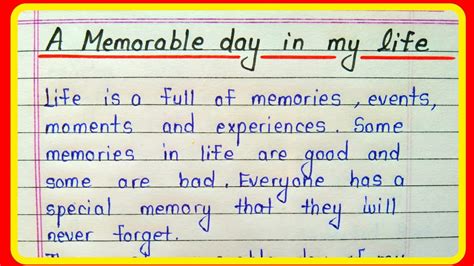 A Memorable day in my life
Life is a full of memories, events,
moments and experiences. Some
memories in life are good and
some are bad. Everyone has a
special memory that they will
never forget.